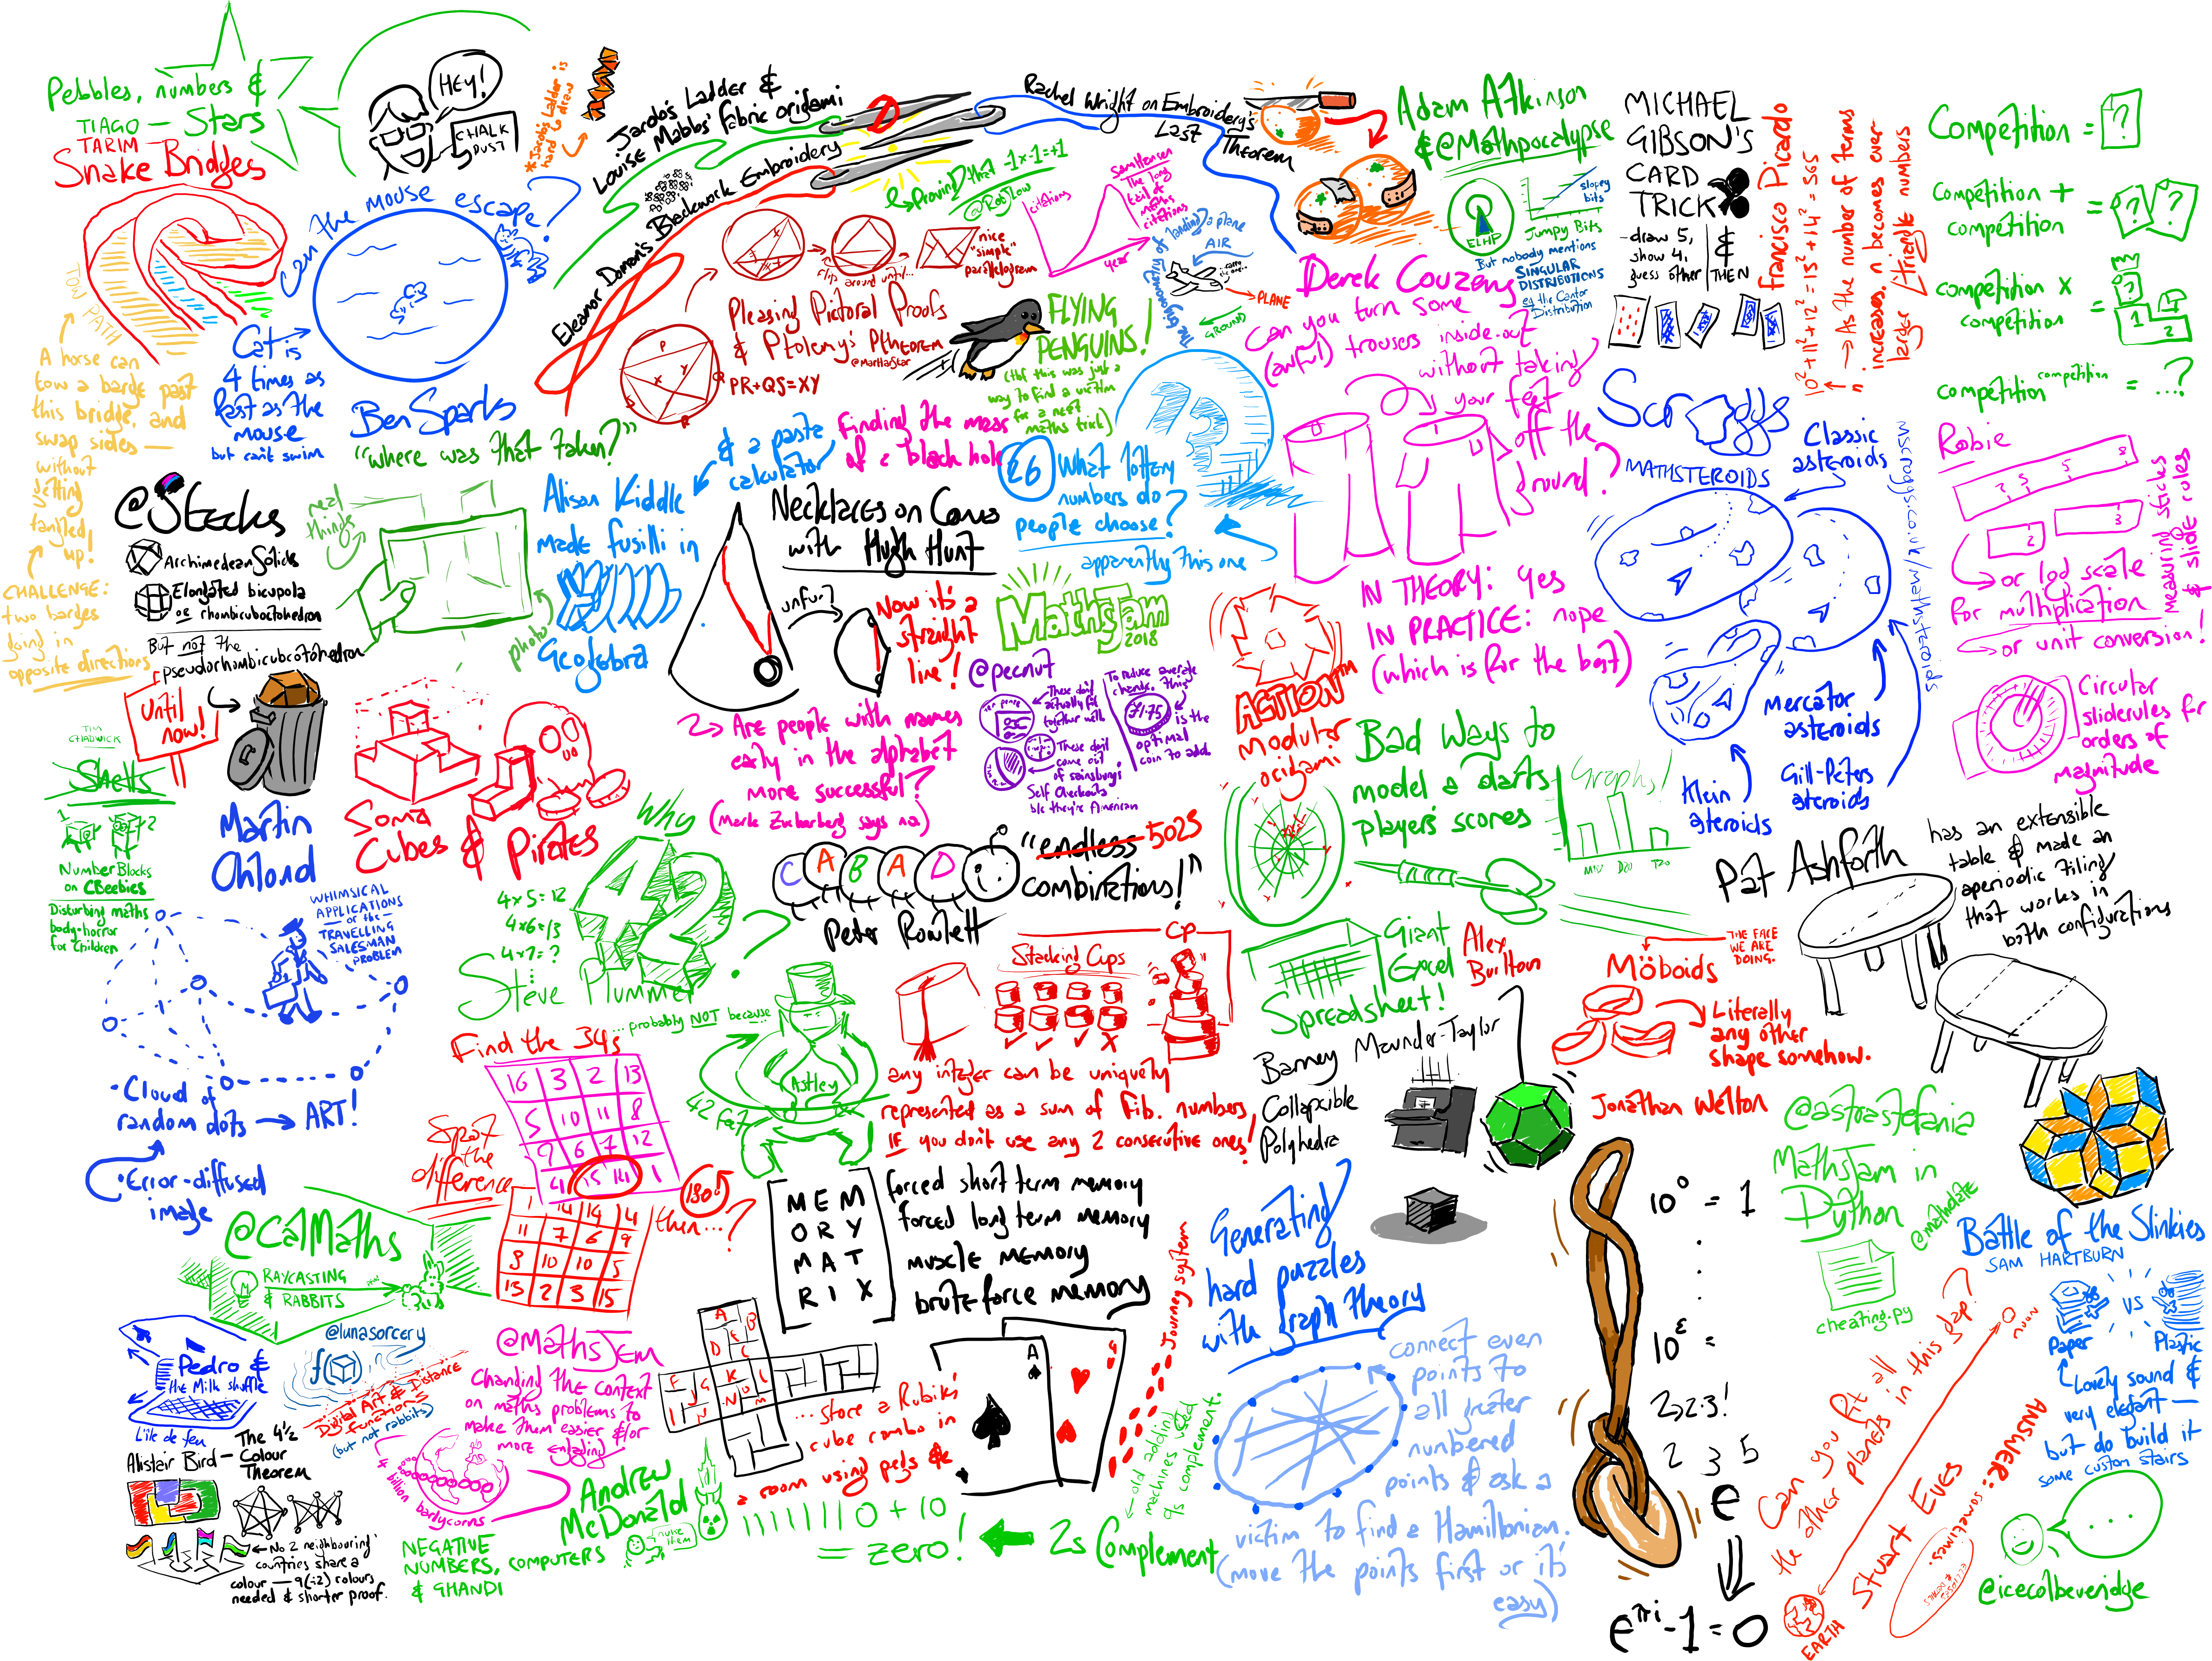 Pebbles, numbers &
TIAGO — Stars
TARIM
Snake Bridges
TOW PATH
A horse can
tow a barge past
this bridge, and
swap sides —
without
getting
tangled
up!
CHALLENGE:
two barges
going in
opposite directions
HEY!
CHALK
DUST
*Jacob's Ladder is
hard to draw
Can the mouse escape?
Cat is
4 times as
fast as the
mouse
but can't swim
Ben Sparks
Jacob's Ladder &
Louise Mabbs' Fabric origami
Eleanor Doman's Blackwork Embroidery
Rachel Wright on Embroidery's
Last Theorem
Proving that -1×-1=+1
@RobJLow
Sam Hansen
The long
tail of
maths
citations
citations
year
flip around until...
nice
"simple"
parallelogram
Pleasing Pictoral Proofs
& Ptolemy's Ptheorem
@MarthaStar
PR+QS=XY
P
X
Y
Q
S
R
FLYING
PENGUINS!
(tbf this was just a
way to find a victim
for a next
maths trick)
The trigonometry of landing a plane
AIR
PLANE
GROUND
Adam Atkinson
& @Mathpocalypse
ELHP
slopey
bits
Jumpy Bits
But nobody mentions
SINGULAR
DISTRIBUTIONS
eg the Cantor
Distribution
MICHAEL
GIBSON'S
CARD
TRICK
-draw 5,
show 4,
guess other
&
THEN
Francisco Picado
10²+11²+12²=13²+14²=365
n
→ As the number of terms
increases, n becomes ever-
larger triangle numbers
Competition = ?
Competition +
competition
= ? ?
competition ×
competition
= ? 1 2
competition^competition = ...?
Derek Couzens
Can you turn some
(awful) trousers inside-out
without taking
your feet
off the
ground?
IN THEORY: yes
IN PRACTICE: nope
(which is for the best)
Scroggs
MATHSTEROIDS
Classic
asteroids
mscroggs.co.uk/mathsteroids
Mercator
asteroids
Gill-Peters
steroids
Klein
steroids
Robie
or log scale
for multiplication
or unit conversion!
measuring sticks
& slide rules
Circular
sliderules for
orders of
magnitude
"where was that taken?"
real
things
photo
@Stecks
Archimedean Solids
Elongated bicupola
or rhombicuboctohedron
But not the
pseudorhombicuboctohedron
Until
now!
Alison Kiddle
made fusilli in
Geogebra
& a pasta
calculator
Finding the mass
of a black hole
26
What lottery
numbers do
people choose?
apparently this one
13
Necklaces on Cones
with Hugh Hunt
unfurl
Now it's a
straight
line!
MathsJam
2018
@pecnut
TEN PENCE
These don't
actually fit
together with
These don't
come out of
sainsburys
Self Checkouts
b/c they're American
To reduce average
change, this
£1.75
is the
optimal
coin to add.
ACTION™
modular
origami
Are people with names
early in the alphabet
more successful?
(Mark Zuckerberg says no)
TIM
CHADWICK
Shells
1
2
Number Blocks
on CBeebies
Disturbing maths
body-horror
for children
Martin
Chlond
WHIMSICAL
APPLICATIONS
— of the —
TRAVELLING
SALESMAN
PROBLEM
•Cloud of
random dots → ART!
•Error-diffused
image
Soma
Cubes & Pirates
Why
42
?
4×5=12
4×6=13
4×7=?
Steve Plummer
...probably NOT because...
Astley
42 fat
C A B A D
"endless 5025
combinations!"
Peter Rowlett
Bad Ways to
model a darts
player's scores
Graphs!
M20 D20 T20
Giant
Excel
Spreadsheet!
Alex
Burlton
Pat Ashforth
has an extensible
table & made an
aperiodic tiling
that works in
both configurations
Möboids
THE FACE
WE ARE
DOING.
Literally
any other
shape somehow.
Jonathan Welton
CP
Stacking Cups
any integer can be uniquely
represented as a sum of Fib. numbers,
IF you don't use any 2 consecutive ones!
Barney Maunder-Taylor
Collapsible
Polyhedra
Find the 34s
16 3 2 13
5 10 11 8
9 6 7 12
4 15 14 1
Spot
the
difference
1 14 14 4
11 7 6 9
8 10 10 5
13 2 3 15
180°
then...?
MEM
ORY
MAT
RIX
forced short term memory
forced long term memory
muscle memory
brute force memory
@CalMaths
RAYCASTING
& RABBITS
Pedro &
the Milk shuffle
L'ile de feu
@lunasorcery
Digital Art & Distance
functions
(but not rabbits)
@MathsJem
Changing the context
on maths problems to
make them easier &/or
more engaging
4 billion barleycorns
... store a Rubik's
cube combo in
a room using pegs &
A
Journey system
Generating
hard puzzles
with graph theory
connect even
points to
all greater
numbered
points & ask a
victim to find a Hamiltonian.
(move the points first or it's
easy)
old adding
machines used
9s complement.
2s Complement
111111110 + 10
= zero!
Andrew
McDonald
nuke
them
NEGATIVE
NUMBERS, COMPUTERS
& GHANDI
Alistair Bird —
The 4½
Colour
Theorem
← No 2 neighbouring
countries share a
colour — 9(÷2) colours
needed & shorter proof.
10⁰ = 1
10^ε =
2→2·3!
2 3 5
e
e^πi-1=0
@astrastefania
MathsJam in
Python
@mathdate
cheating.py
Battle of the Slinkies
SAM HARTBURN
VS
Paper
Plastic
Lovely sound &
very elegant —
but do build it
some custom stairs
Can you fit all
the other planets in this gap?
MOON
EARTH
Stuart Eves
ANSWER: sometimes.
@icecolbeveridge